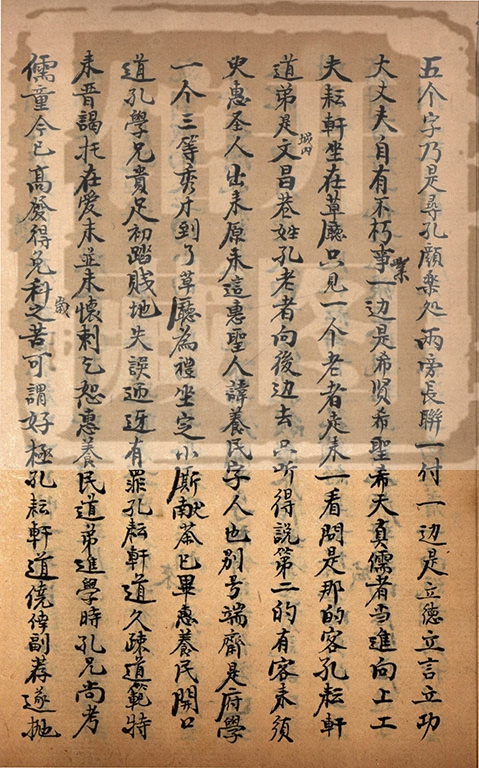 五个字乃是尋孔顔樂処兩旁長聯一付一边是立德立言立功
大丈夫自有不朽事業一边是希贤希聖希天真儒者当進向上工
夫耘軒坐在草廳只見一个老者走来一看問是那的客孔耘軒
道弟是城内文昌巷姓孔老者向後边去只听得説第二的有客来須
史惠圣人出来原来這惠聖人諱養民字人也别号端齋是府學
一个三等秀才到了草廳為禮坐定小厮献茶已畢惠養民開口
道孔學兄貴足初踏賤地失誤迎迓有罪孔耘軒道久疎道範特
来晋謁托在爱末並未懷刺乞恕惠養民道弟進學時孔兄尚考
儒童今已髙發得免科歲之苦可謂好極孔耘軒道僥倖副荐遂抛